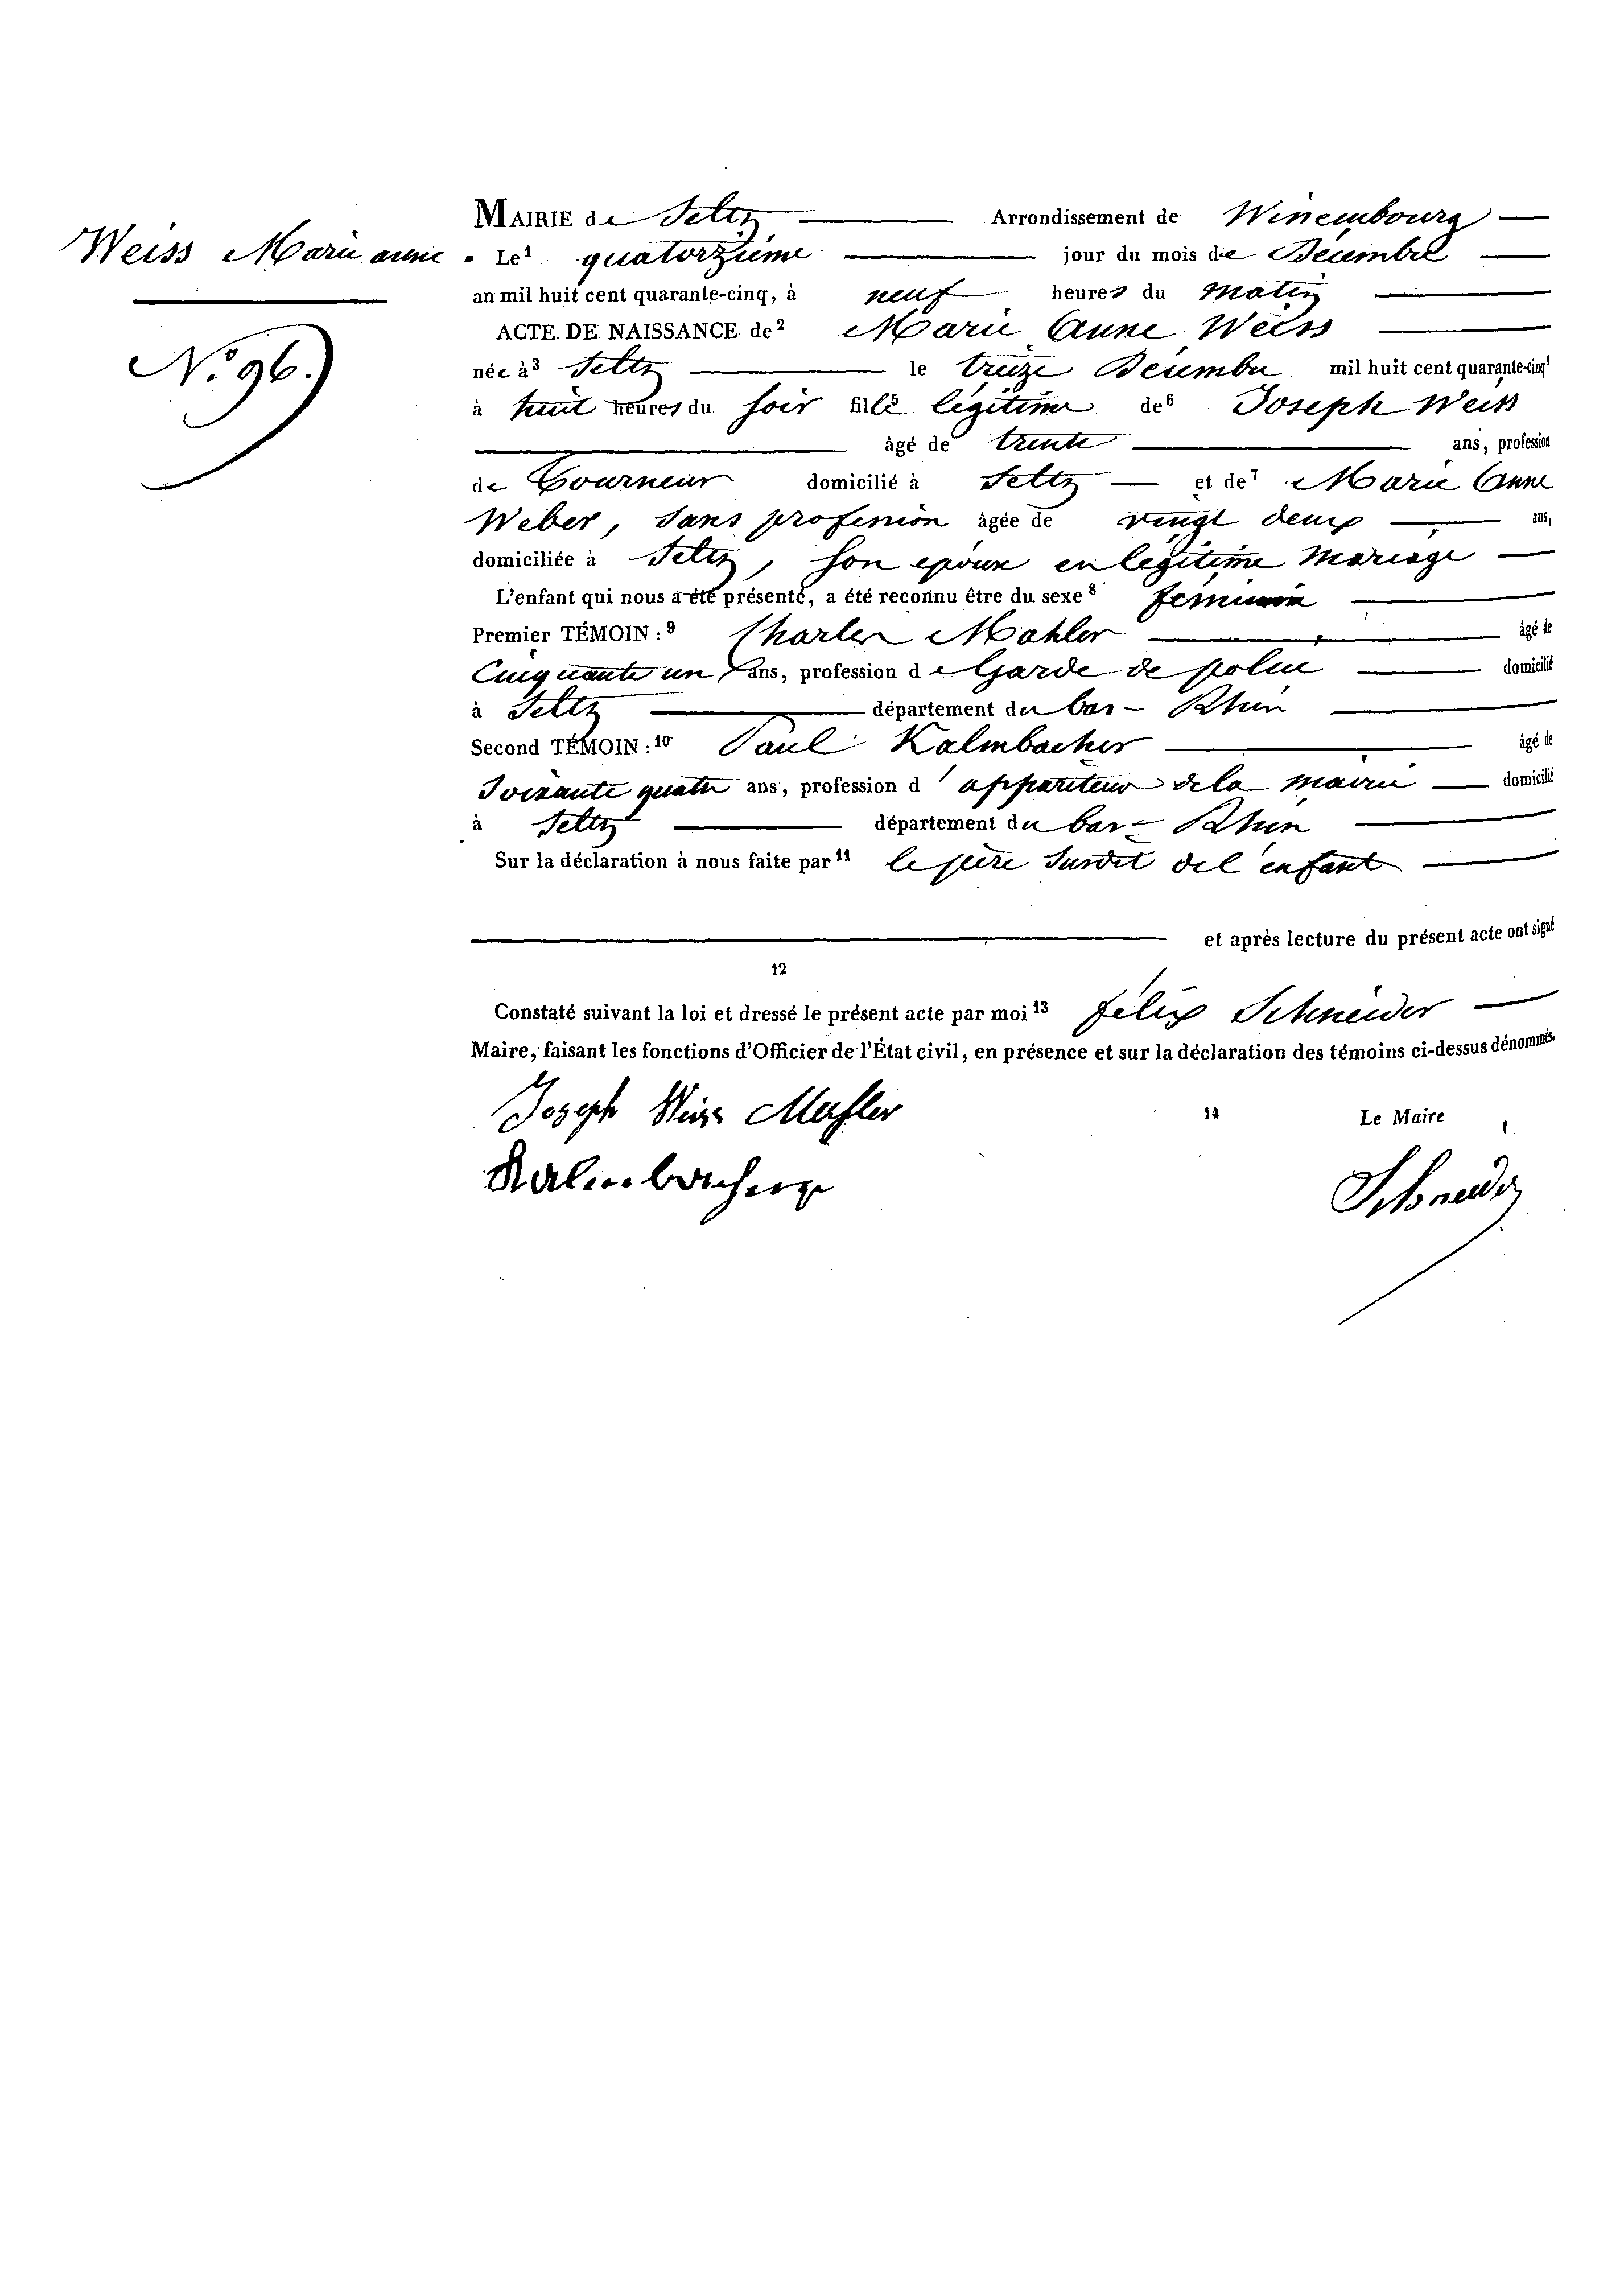 Weiss Marie anne
N.º 96.
MAIRIE de Seltz Arrondissement de Wissembourg
Le 1 quatorzième jour du mois de Décembre
an mil huit cent quarante-cinq, à neuf heures du matin
ACTE DE NAISSANCE de 2 Marie Anne Weiss
née à 3 Seltz le treize Décembre mil huit cent quarante-cinq
à huit heures du soir fille légitime de 6 Joseph Weiss
âgé de trente ans, profession
de Tourneur domicilié à Seltz et de 7 Marie Anne
Weber, sans profession âgée de vingt deux ans,
domiciliée à Seltz, son epouse en légitime mariage
L'enfant qui nous a été présenté, a été reconnu être du sexe 8 féminin
Premier TÉMOIN : 9 Charles Mahler âgé de
Cinquante un ans, profession de Garde de police domicilié
à Seltz département du bas-Rhin
Second TÉMOIN : 10 Paul Kalmbacher âgé de
Soixante quatre ans, profession d'appariteur de la mairie domicilié
à Seltz département du bas-Rhin
Sur la déclaration à nous faite par 11 le père susdit de l'enfant
et après lecture du présent acte ont signé
12
Constaté suivant la loi et dressé le présent acte par moi 13 félix Schneider
Maire, faisant les fonctions d'Officier de l'État civil, en présence et sur la déclaration des témoins ci-dessus dénommés
Joseph Weiss Mahler 14 Le Maire
Kalmbacher Schneider